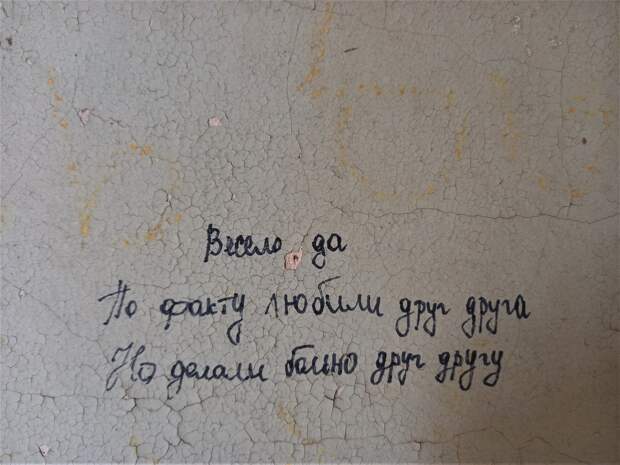 Весело да
По факту любили друг друга
Но делали больно друг другу